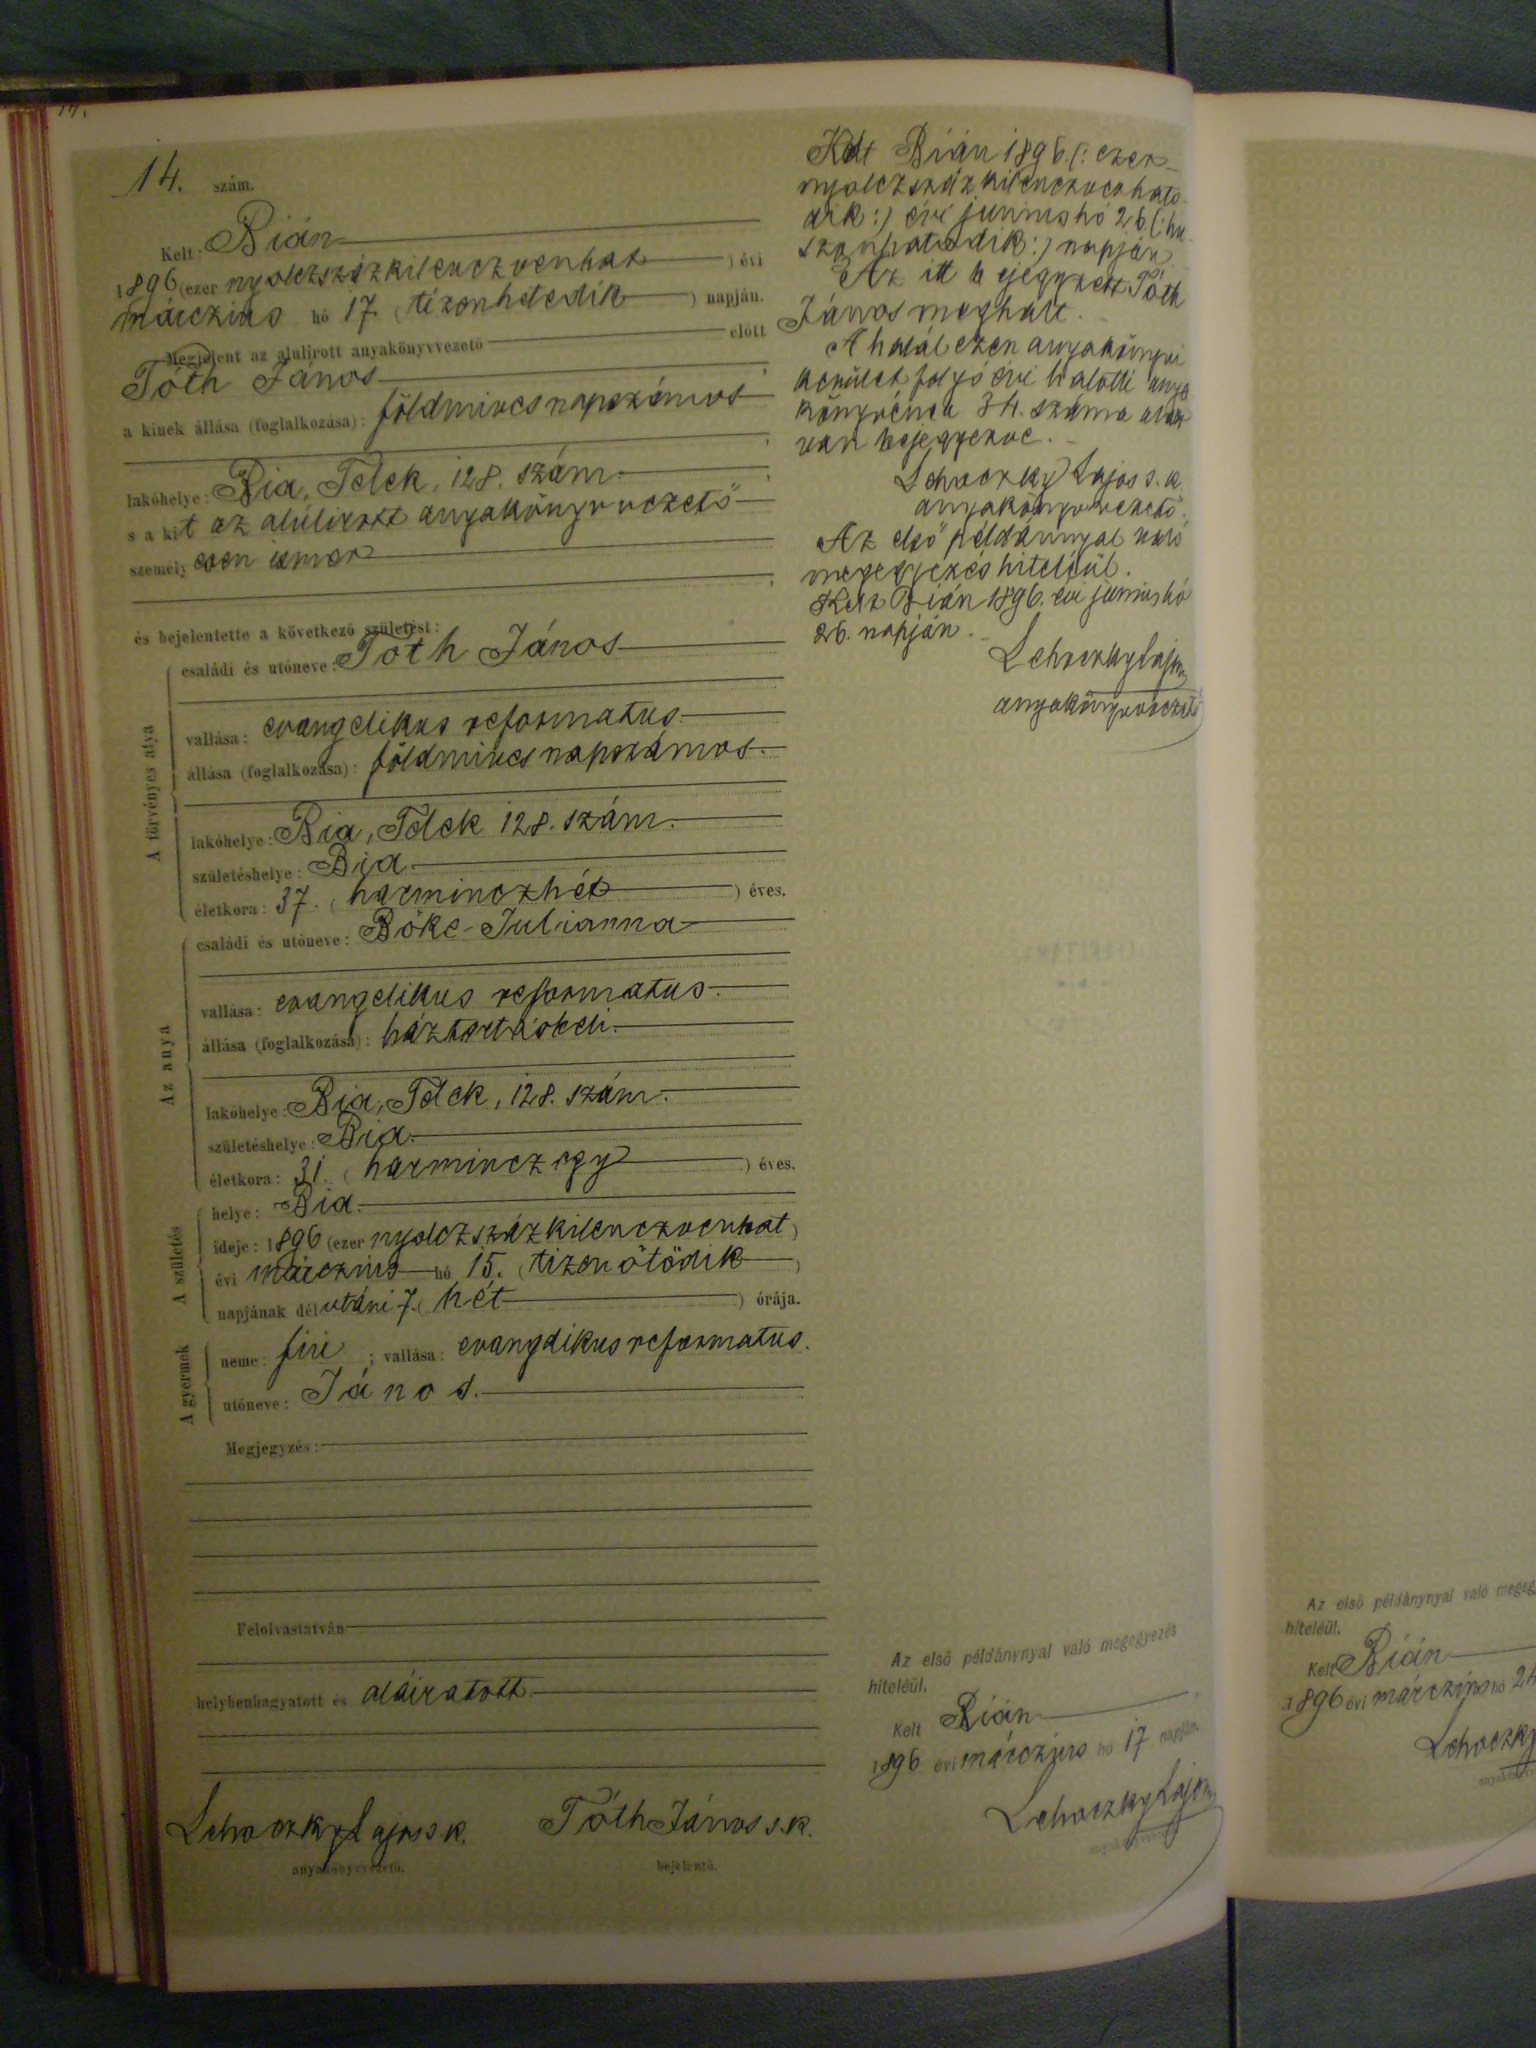 14. szám.
Kelt: Bián
1896 (ezer nyolczszázkilenczvenhat ) évi
márczius hó 17. (tizenhetedik ) napján.
Megjelent az alulirott anyakönyvvezető előtt
Tóth János
a kinek állása (foglalkozása): földmives napszámos
lakóhelye: Bia, Telek, 128. szám.
s a kit az alúlirott anyakönyvvezető
személyesen ismer
és bejelentette a következő születést:
A törvényes atya
családi és utóneve: Tóth János
vallása: evangelikus reformatus.
állása (foglalkozása): földmives napszámos.
lakóhelye: Bia, Telek 128. szám.
születéshelye: Bia.
életkora: 37. (harminczhét ) éves.
Az anya
családi és utóneve: Bőke Julianna
vallása: evangelikus reformatus.
állása (foglalkozása): háztartásbeli.
lakóhelye: Bia, Telek, 128. szám.
születéshelye: Bia.
életkora: 31. (harminczegy ) éves.
A születés
helye: Bia.
ideje: 1896 (ezer nyolczszázkilenczvenhat)
évi márczius hó 15. (tizenötödik )
napjának délutáni 7. (hét ) órája.
A gyermek
neme: fiú ; vallása: evangelikus reformatus.
utóneve: János.
Megjegyzés:
Felolvastatván
helybenhagyatott és aláiratott.
Lehoczky Lajos s. k. Tóth János s. k.
anyakönyvvezető. bejelentő.
Kelt Bián 1896. (: ezer-
nyolczszázkilenczvenhato-
dik :) évi junius hó 26. (: hu-
szonhatodik :) napján.
Az itt bejegyzett Tóth
János meghalt.
A halál ezen anyakönyvi
kerület folyó évi halotti anya
könyvének 34. száma alatt
van bejegyezve.
Lehoczky Lajos s. k.
anyakönyvvezető.
Az első példánnyal való
megegyezés hiteléül.
Kelt Bián 1896. évi junius hó
26. napján.
Lehoczky Lajos
anyakönyvvezető
Az első példánynyal való megegyezés
hiteléül.
Kelt Bián
1896 évi márczius hó 17 napján.
Lehoczky Lajos
anyakönyvvezető
Az első példánynyal való megeg
hiteléül.
Kelt Bián
1896 évi márczius hó 24
Lehoczky